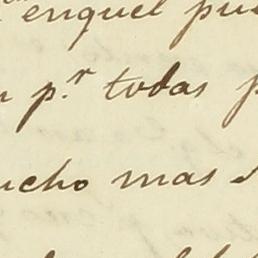 enquel pu
n p.r todas p
ucho mas s